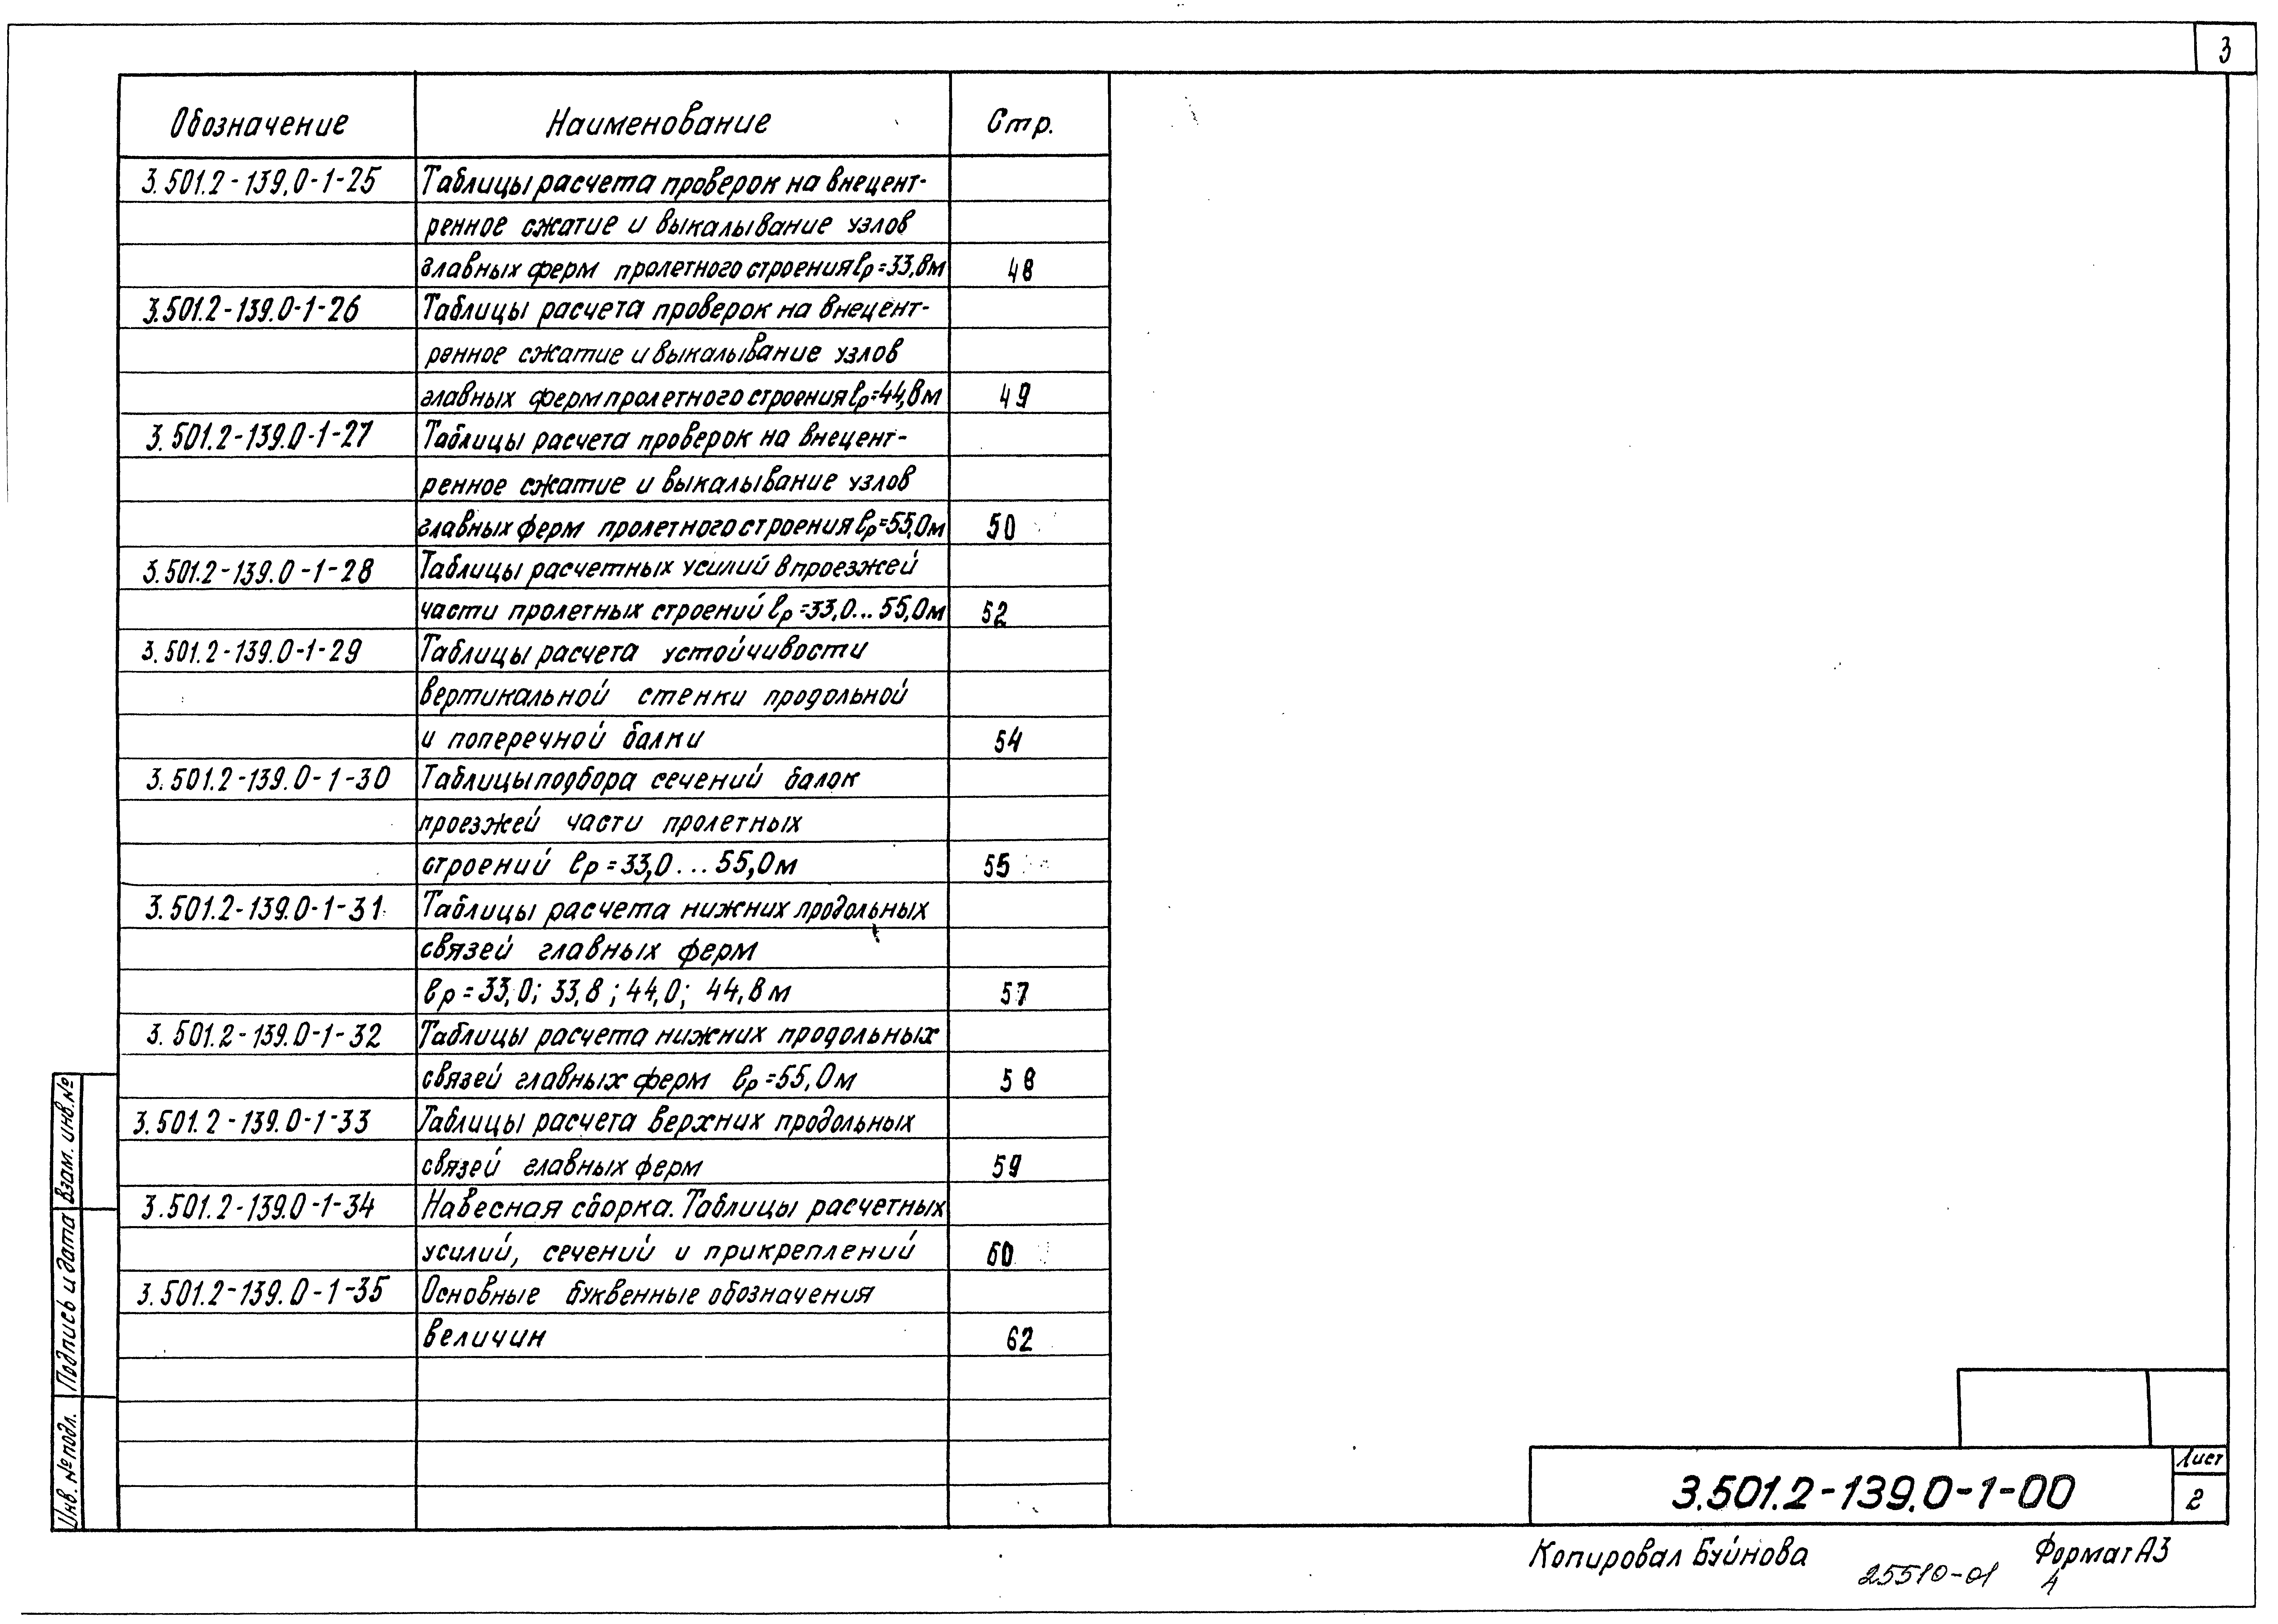 3
Обозначение Наименование Стр.
3.501.2-139.0-1-25 Таблицы расчета проверок на внецент-
ренное сжатие и выкалывание узлов
главных ферм пролетного строения lр=33,8м 48
3.501.2-139.0-1-26 Таблицы расчета проверок на внецент-
ренное сжатие и выкалывание узлов
главных ферм пролетного строения lр=44,8м 49
3.501.2-139.0-1-27 Таблицы расчета проверок на внецент-
ренное сжатие и выкалывание узлов
главных ферм пролетного строения lр=55,0м 50
3.501.2-139.0-1-28 Таблицы расчетных усилий в проезжей
части пролетных строений lр=33,0...55,0м 52
3.501.2-139.0-1-29 Таблицы расчета устойчивости
вертикальной стенки продольной
и поперечной балки 54
3.501.2-139.0-1-30 Таблицы подбора сечений балок
проезжей части пролетных
строений lр=33,0...55,0м 55
3.501.2-139.0-1-31 Таблицы расчета нижних продольных
связей главных ферм
lр=33,0; 33,8; 44,0; 44,8м 57
3.501.2-139.0-1-32 Таблицы расчета нижних продольных
связей главных ферм lр=55,0м 58
3.501.2-139.0-1-33 Таблицы расчета верхних продольных
связей главных ферм 59
3.501.2-139.0-1-34 Навесная сборка. Таблицы расчетных
усилий, сечений и прикреплений 60
3.501.2-139.0-1-35 Основные буквенные обозначения
величин 62
Инв. № подл. Подпись и дата Взам. инв. №
3.501.2-139.0-1-00
Лист
2
Копировал Буйнова Формат А3
25510-01 4